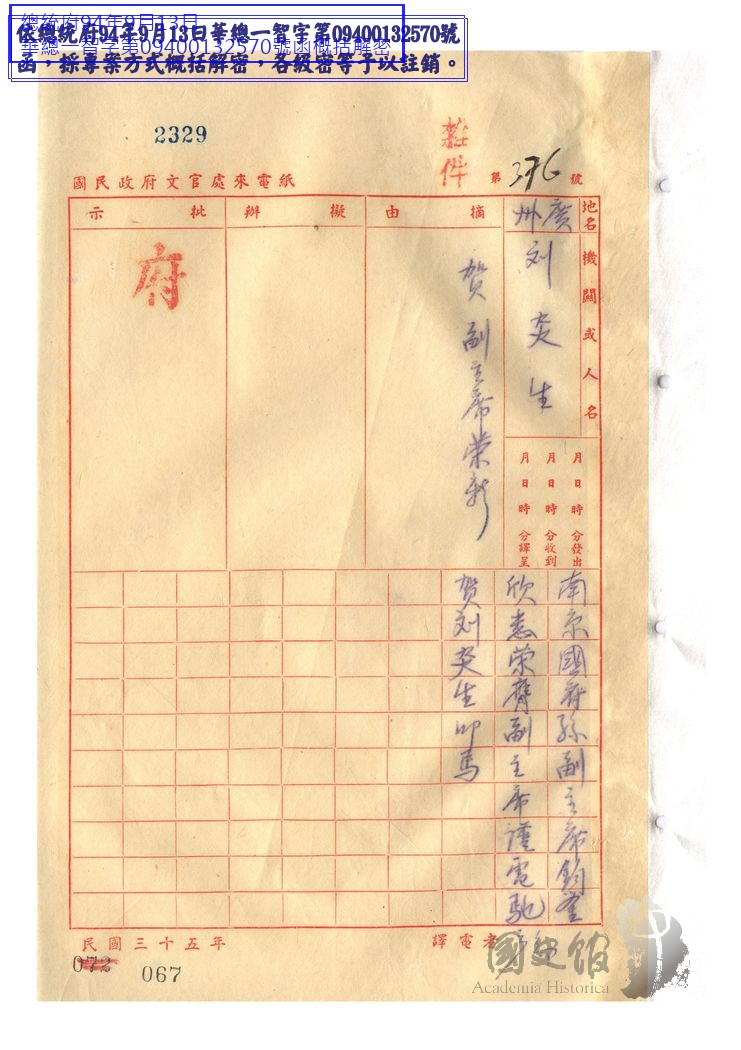 總統府94年9月13日
華總一智字第09400132570號函概括解密
依總統府94年9月13日華總一智字第09400132570號
函，採專案方式概括解密，各級密等予以註銷。
2329
雜件
第376號
國民政府文官處來電紙
地名
廣州
機關或人名
刘炎生
摘由
賀副主席榮新
擬辦
批示
府
月日時分發出
月日時分收到
月日時分譯呈
南京國府孫副主席鈞鑒
欣悉榮膺副主席謹電馳
賀刘炎生叩馬
民國三十五年
譯電者
072
067
國史館
Academia Historica